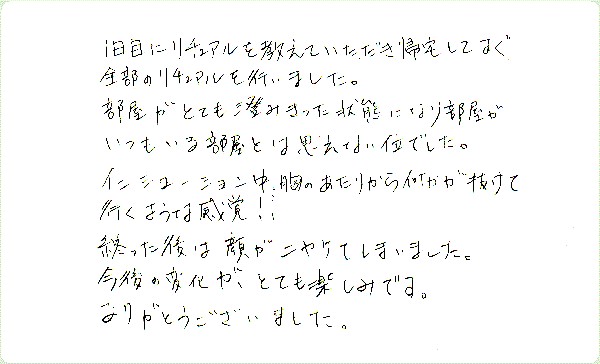 1日目にリチュアルを教えていただき帰宅してすぐ
全部のリチュアルを行いました。
部屋がとても澄みきった状態になり部屋が
いつもいる部屋とは思えない位でした。
イニシエーション中、胸のあたりから何かが抜けて
行くような感覚!!
終った後は顔がニヤケてしまいました。
今後の変化が、とても楽しみです。
ありがとうございました。